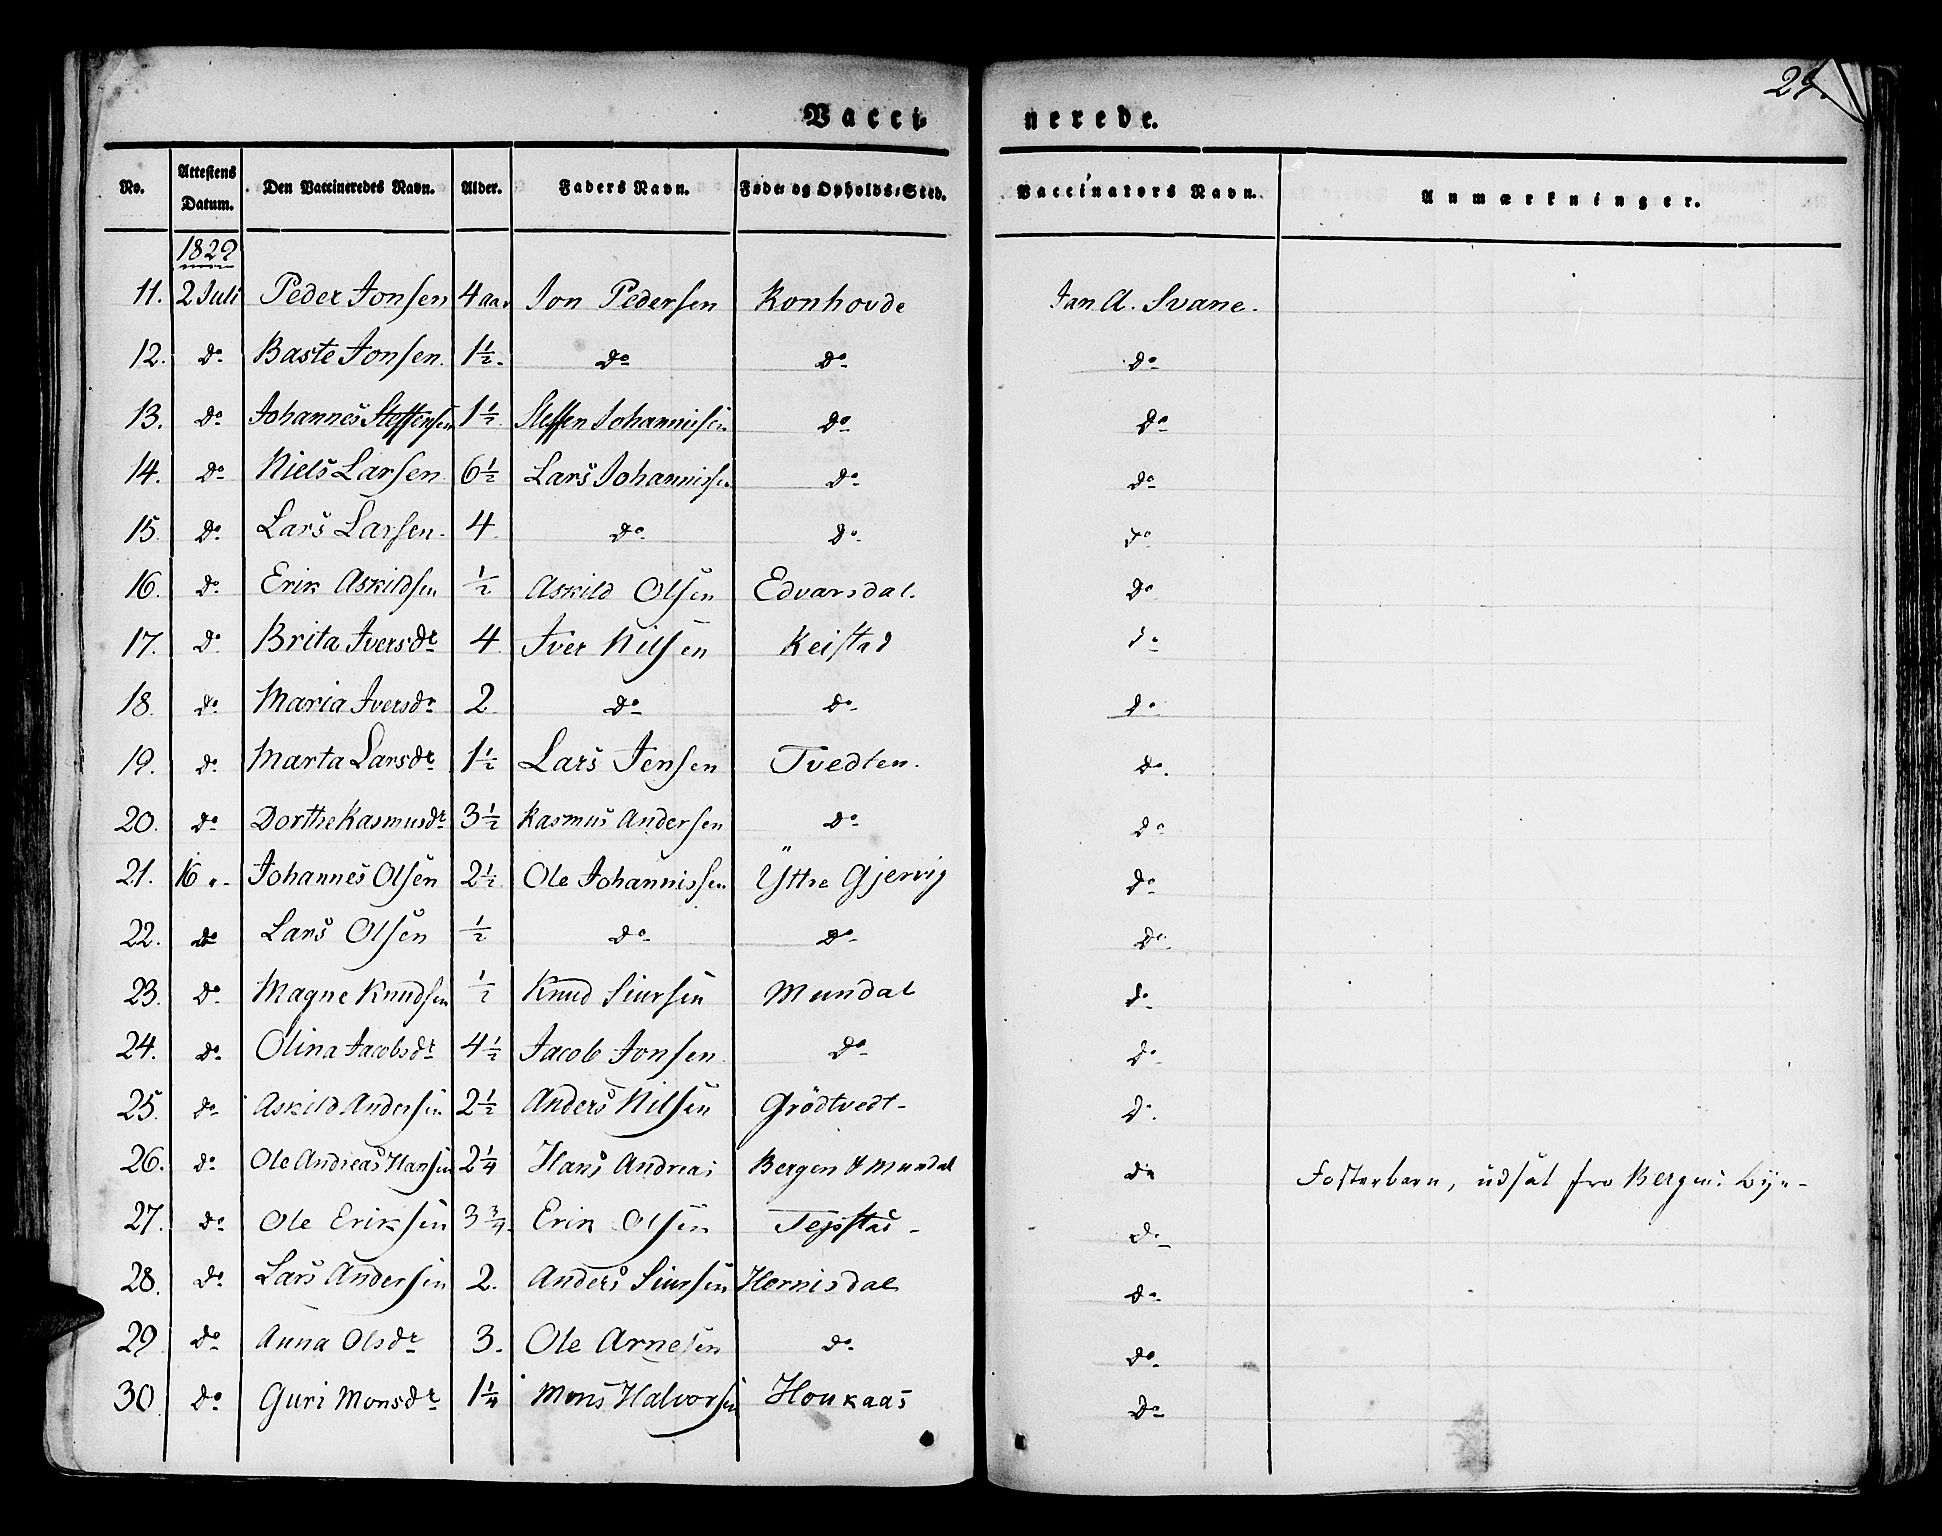 29.
Vacci- nerede.
No. Attestens Datum. Den Vaccineredes Navn. Alder. Faders Navn. Føde- og Opholds-Sted. Vaccinators Navn. Anmærkninger.
1829
11. 2 Juli Peder Jonsen 4 aar Jon Pedersen Ronhovde Jan A. Svane.
12. do Baste Jonsen. 1½. do do do
13. do Johannes Steffensen 1½. Steffen Johannissen do do
14. do Niels Larsen 6½ Lars Johannissen do do
15. do Lars Larsen. 4 do do do
16. do Erik Askildsen ½ Askild Olsen Edvarsdal. do
17. do Brita Iversdr 4 Iver Nilsen Keistad do
18. do Maria Iversdr 2 do do do
19. do Marta Larsdr 1½ Lars Jensen Tvedten. do
20. do Dorthe Rasmusdr 3½ Rasmus Andersen do do
21. 16 " Johannes Olsen 2½ Ole Johannissen Yttre Gjervig do
22. do Lars Olsen ½ do do do
23. do Magne Knudsen ½ Knud Siursen Mundal do
24. do Olina Jacobsdr 4½ Jacob Jonsen do do
25. do Askild Andersen 2½ Anders Nilsen Grödtvedt do
26. do Ole Andreas Hansen 2¼ Hans Andreas Bergen & Mundal do Fosterbarn, udsat fra Bergens bye
27. do Ole Eriksen 3¾ Erik Olsen do
28. do Lars Andersen 2. Anders Siursen Hornisdal do
29 do Anna Olsdr 3. Ole Arnesen do do
30 do Guri Monsdr 1¼ Mons Halvorsen Houkaas do